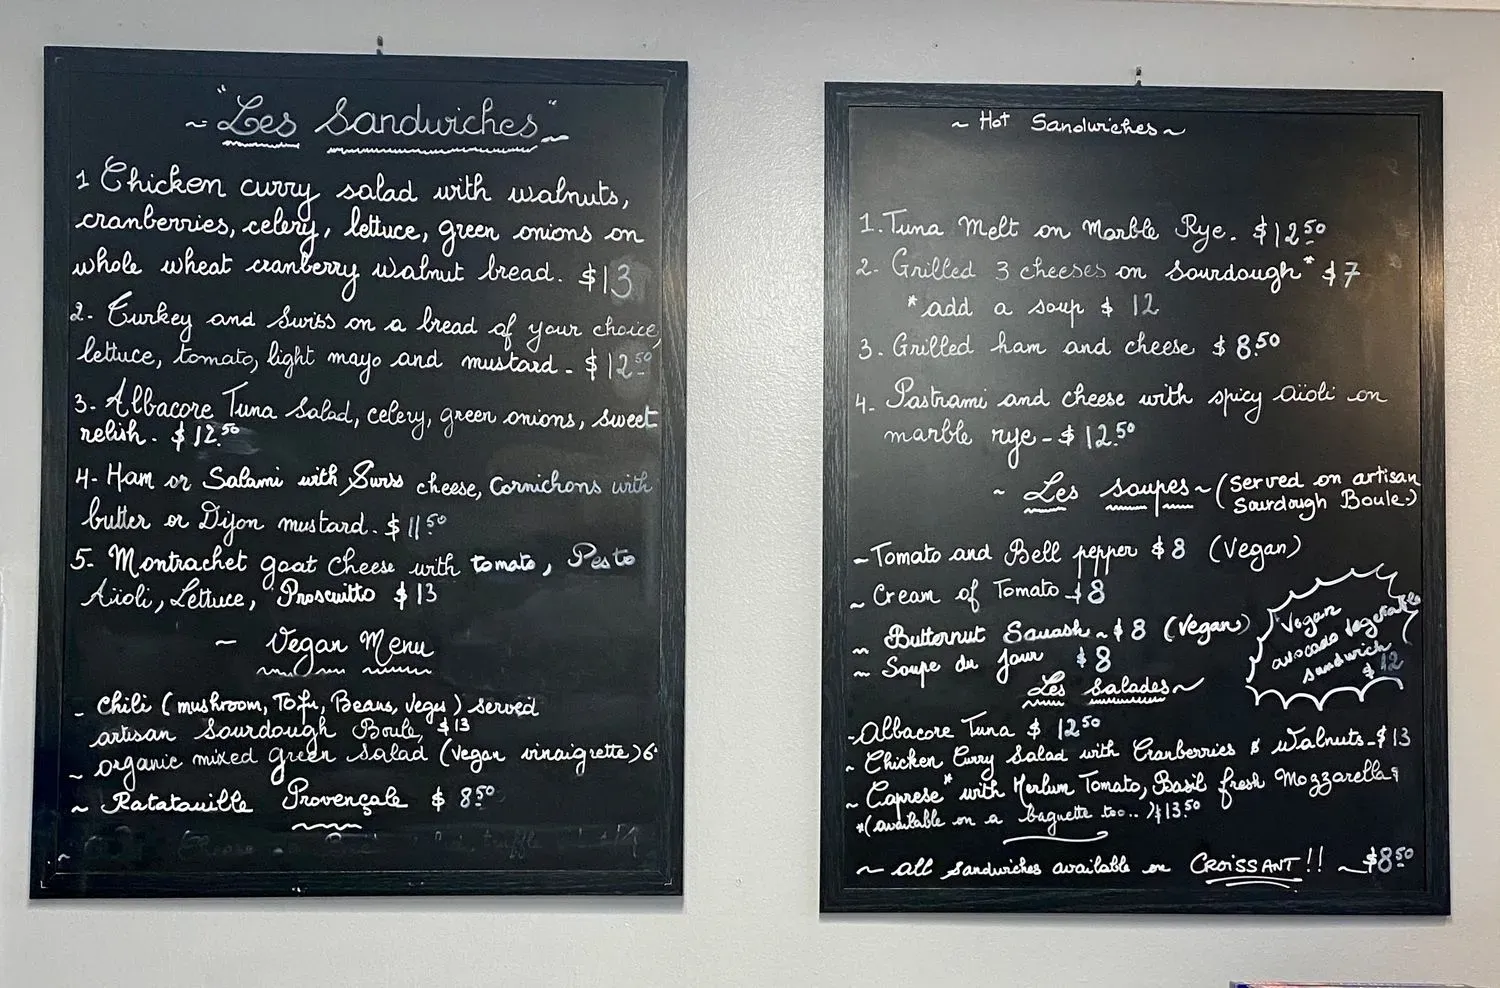 ~ "Les Sandwiches" ~
1 Chicken curry salad with walnuts,
cranberries, celery, lettuce, green onions on
whole wheat cranberry walnut bread. $13
2. Turkey and Swiss on a bread of your choice,
lettuce, tomato, light mayo and mustard - $12.50
3. Albacore Tuna Salad, celery, green onions, sweet
relish. $12.50
4. Ham or Salami with Swiss cheese, Cornichons with
butter or Dijon mustard. $11.50
5. Montrachet goat cheese with tomato, Pesto
Aïoli, Lettuce, Proscuitto $13
~ Vegan Menu
- Chili (mushroom, Tofu, Beans, Veges) served
artisan Sourdough Boule, $13
~ organic mixed green Salad (vegan vinaigrette) 6
~ Ratatouille Provençale $8.50
~ Hot Sandwiches ~
1. Tuna Melt on Marble Rye. $12.50
2. Grilled 3 cheeses on Sourdough* $7
* add a soup $12
3. Grilled ham and cheese $8.50
4. Pastrami and cheese with spicy aïoli on
marble rye - $12.50
~ Les soupes ~ (served on artisan
Sourdough Boule.)
~ Tomato and Bell pepper $8 (Vegan)
~ Cream of Tomato - $8
~ Butternut Squash ~ $8 (Vegan)
~ Soupe du Jour $8
Vegan
avocado
sandwich
$12
Les Salades ~
- Albacore Tuna $12.50
~ Chicken Curry Salad with Cranberries & Walnuts - $13
~ Caprese* with Tomato, Basil fresh Mozzarella
*(available on a baguette too..) $13.50
~ all sandwiches available on CROISSANT!! ~ $8.50